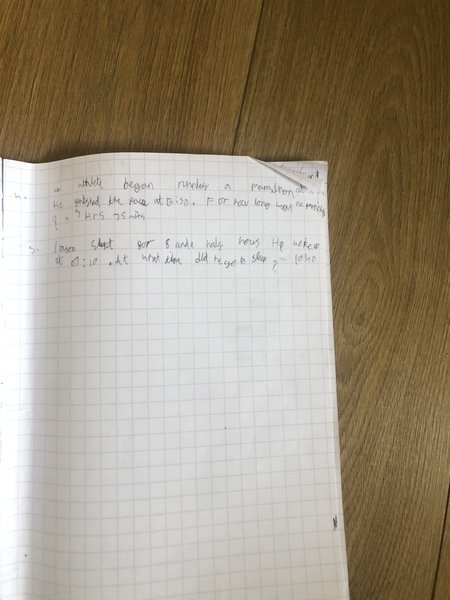 an athlete began running a marathon at
He finished the race at . For how long was he running
? = Hrs 75 mins
5. Jason Slept for 8 and a half hours He woke
at 07:10 . At what time did he go to sleep ? = 1040